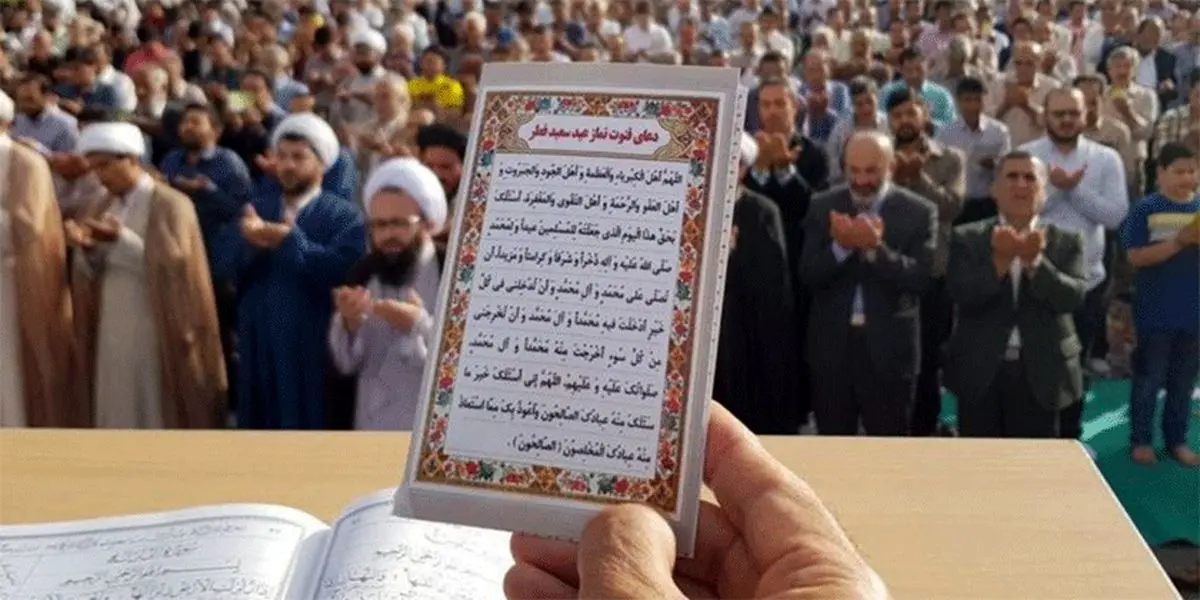 دعای قنوت نماز عید سعید فطر
اَللّهُمَّ اَهْلَ الْکِبْرِیاءِ وَالْعَظَمَةِ وَ اَهْلَ الْجُودِ وَالْجَبَرُوتِ وَ
اَهْلَ الْعَفْوِ وَالرَّحْمَةِ وَ اَهْلَ التَّقْوی وَالْمَغْفِرَةِ، اَسْئَلُکَ
بِحَقِّ هذَا الْیَوْمِ الَّذی جَعَلْتَهُ لِلْمُسْلِمینَ عیداً وَلِمُحَمَّد
صَلَّی اللهُ عَلَیْهِ وَ آلِهِ ذُخْراً وَ شَرَفاً وَ کَرامَتاً وَ مَزیداً، اَن
تُصَلِّیَ عَلی مُحَمَّدٍ وَ آلِ مُحَمَّدٍ وَ اَنْ تُدْخِلَنی فی کُلِّ
خَیْرٍ اَدْخَلْتَ فیهِ مُحَمَّداً وَ آلَ مُحَمَّد وَ اَنْ تُخْرِجَنی
مِنْ کُلِّ سُوءٍ اَخْرَجْتَ مِنْهُ مُحَمَّداً وَ آلَ مُحَمَّدٍ،
صَلَواتُکَ عَلَیْهِ وَ عَلَیْهِمْ، اَللّهُمَّ اِنّی اَسْئَلُکَ خَیْرَ ما
سَئَلَکَ مِنْهُ عِبادُکَ الصّالِحُونَ وَاَعُوذُ بِکَ مِمَّا اسْتَعاذَ
مِنْهُ عِبادُکَ الْمُخْلِصُونَ ( الصّالِحُونَ ) .